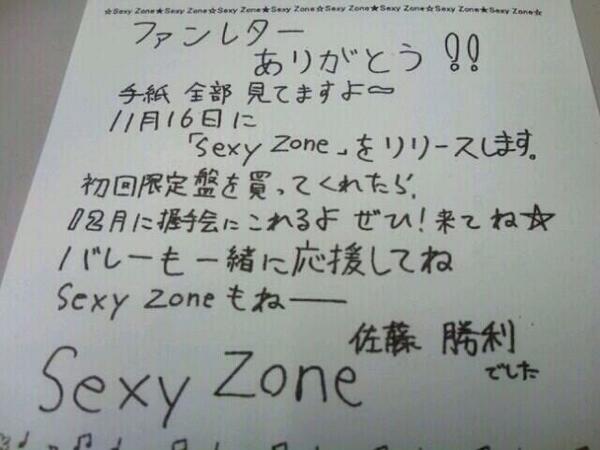 ☆Sexy Zone★Sexy Zone☆Sexy Zone★Sexy Zone☆Sexy Zone★Sexy Zone☆Sexy Zone★Sexy Zone☆
ファンレター
ありがとう!!
手紙 全部 見てますよ〜
11月16日に
「Sexy Zone」をリリースします。
初回限定盤を買ってくれたら、
12月に握手会にこれるよ ぜひ!来てね☆
バレーも一緒に応援してね
Sexy Zoneもねー
佐藤 勝利
でした
Sexy Zone